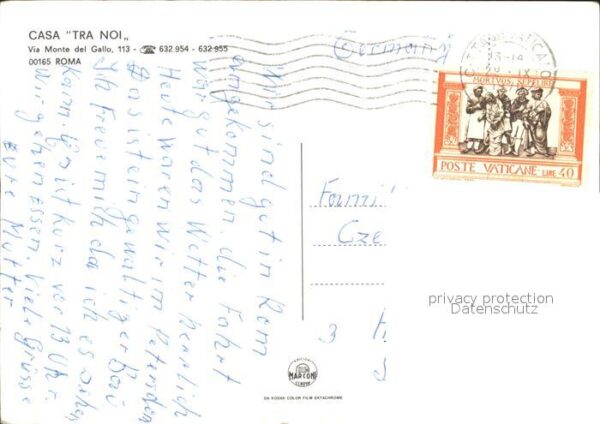 CASA "TRA NOI„
Via Monte del Gallo, 113 - ☎ 632.954 - 632.955
00165 ROMA
Wir sind gut in Rom
angekommen, die Fahrt
war gut das Wetter herrlich
Heute waren wir im Petersdom
Das ist ein gewaltiger Bau
Ich freue mich da ich es sehen
kann. Es ist kurz vor 13 Uhr
wir gehen Essen. Viele Grüsse
Eure Mutter
Germany
MORTVOS SEPELIRE
POSTE VATICANE LIRE 40
Famili
Cze
3 H
S
privacy protection
Datenschutz
MARCONI
GENOVA
DA KODAK COLOR FILM EKTACHROME